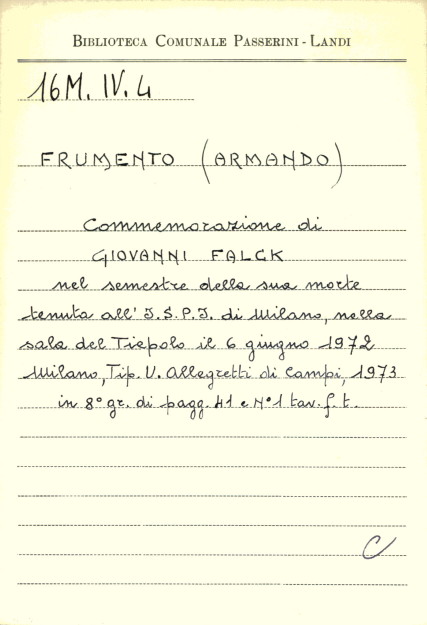 BIBLIOTECA COMUNALE PASSERINI - LANDI
16M. IV. 4
FRUMENTO (ARMANDO)
Commemorazione di
GIOVANNI FALCK
nel semestre della sua morte
tenuta all' I.S.P.I. di Milano, nella
sala del Tiepolo il 6 giugno 1972
Milano, Tip. U. Allegretti di Campi, 1973
in 8° gr. di pagg. 41 e N° 1 tav. f. t.
C